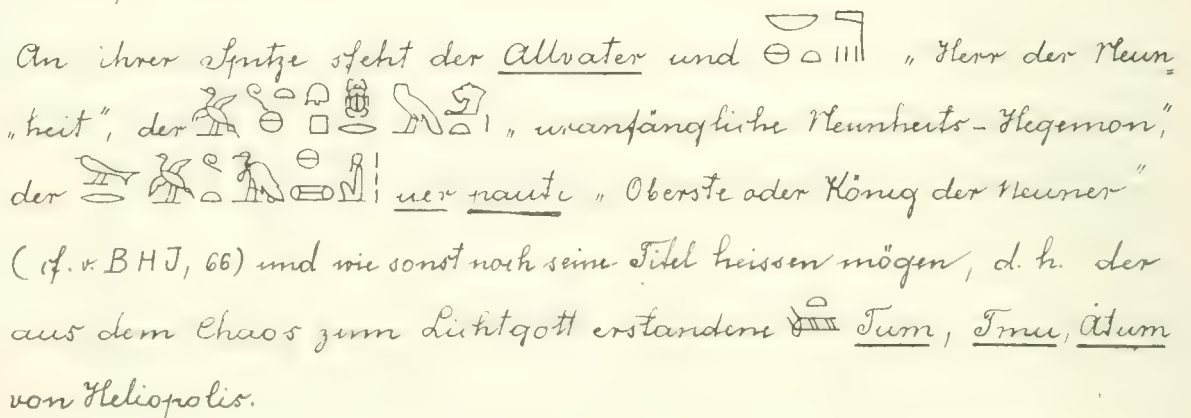 An ihrer Spitze steht der Allvater und „ Herr der Neun=
„heit", der „ uranfängliche Neunheits-Hegemon",
der uer paute „ Oberste oder König der Neuner"
(cf. v. BHJ, 66) und wie sonst noch seine Titel heissen mögen, d. h. der
aus dem Chaos zum Lichtgott erstandene Tum, Tmu, Atum
von Heliopolis.